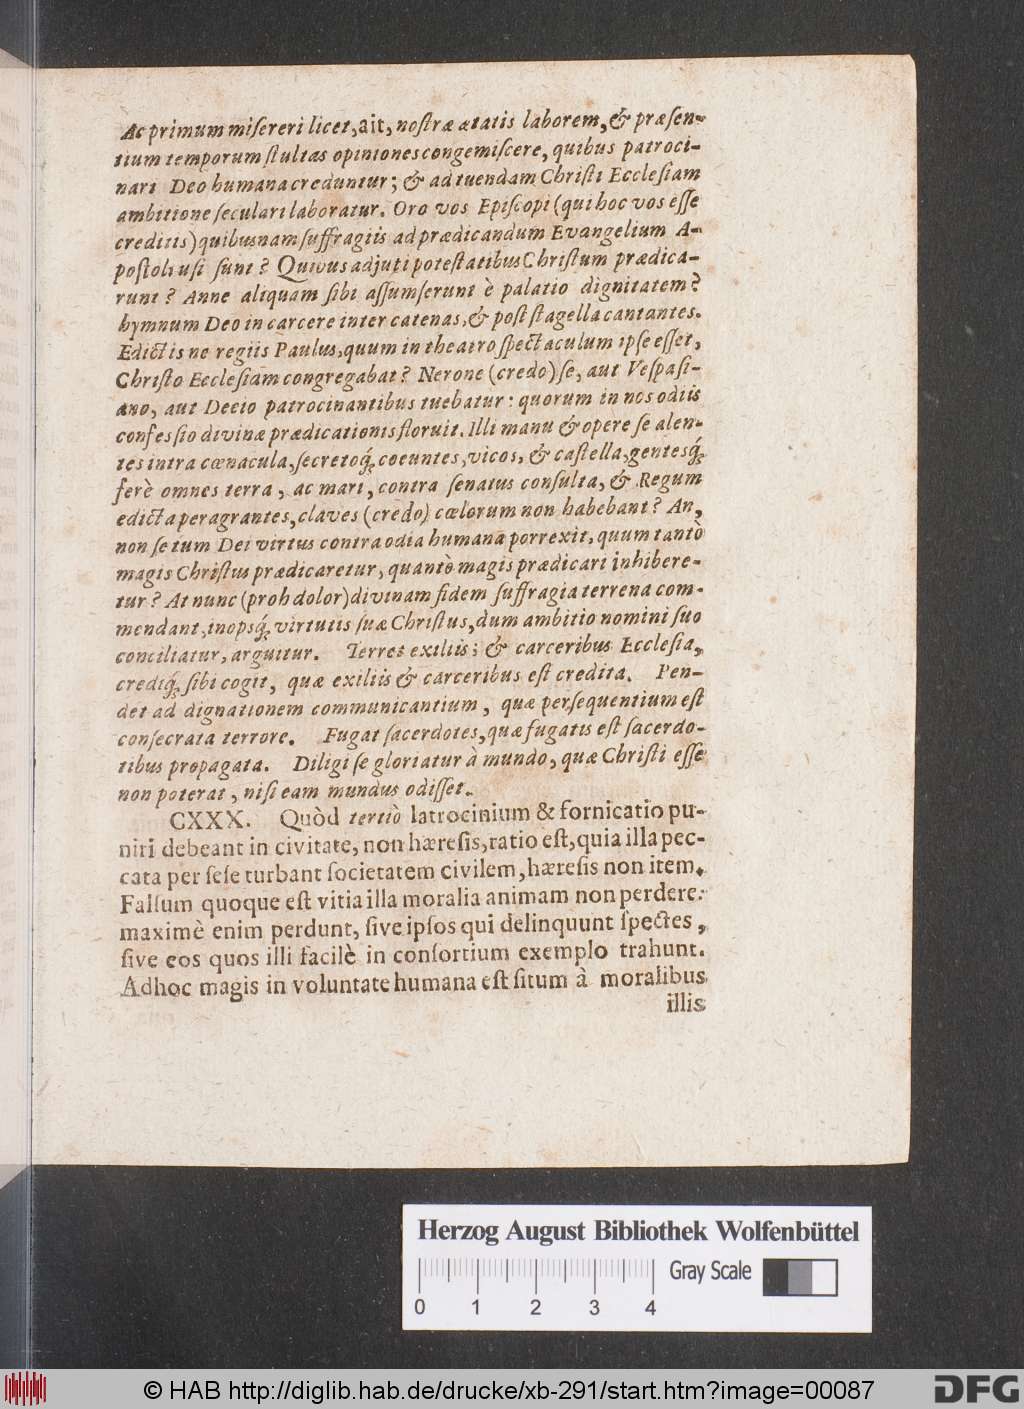 Ac primum miſereri licet, ait, noſtræ ætatis laborem, & præſen-
tium temporum ſtultas opiniones congemiſcere, quibus patroci-
nari Deo humana creduntur; & ad tuendam Chriſti Eccleſiam
ambitione ſeculari laboratur. Oro vos Epiſcopi (qui hoc vos eſſe
creditis) quibusnam ſuffragiis ad prædicandum Evangelium A-
poſtoli uſi ſunt? Quivus adjuti poteſtatibus Chriſtum prædica-
runt? Anne aliquam ſibi aſſumſerunt è palatio dignitatem?
hymnum Deo in carcere inter catenas, & poſt flagella cantantes.
Edictis ne regiis Paulus, quum in theatro ſpectaculum ipſe eſſet,
Chriſto Eccleſiam congregabat? Nerone (credo) ſe, aut Veſpaſi-
ano, aut Decio patrocinantibus tuebatur: quorum in nos odiis
confeſſio divinæ prædicationis floruit. Illi manu & opere ſe alen-
tes intra cœnacula, ſecretoq́; coeuntes, vicos, & caſtella, gentesq́;
ferè omnes terra, ac mari, contra ſenatus conſulta, & Regum
edicta peragrantes, claves (credo) cœlorum non habebant? An,
non ſe tum Dei virtus contra odia humana porrexit, quum tantò
magis Chriſtus prædicaretur, quantò magis prædicari inhibere-
tur? At nunc (proh dolor) divinam fidem ſuffragia terrena com-
mendant, inopsq́; virtutis ſuæ Chriſtus, dum ambitio nomini ſuo
conciliatur, arguitur. Terret exiliis; & carceribus Eccleſia,
crediq́; ſibi cogit, quæ exiliis & carceribus eſt credita. Pen-
det ad dignationem communicantium, quæ perſequentium eſt
conſecrata terrore. Fugat ſacerdotes, quæ fugatis eſt ſacerdo-
tibus propagata. Diligi ſe gloriatur à mundo, quæ Chriſti eſſe
non poterat, niſi eam mundus odiſſet.
CXXX. Quòd tertiò latrocinium & fornicatio pu-
niri debeant in civitate, non hæreſis, ratio eſt, quia illa pec-
cata per ſeſe turbant ſocietatem civilem, hæreſis non item.
Falſum quoque eſt vitia illa moralia animam non perdere:
maximè enim perdunt, ſive ipſos qui delinquunt ſpectes,
ſive eos quos illi facilè in conſortium exemplo trahunt.
Adhoc magis in voluntate humana eſt ſitum à moralibus
illis
Herzog August Bibliothek Wolfenbüttel
Gray Scale
0 1 2 3 4
© HAB http://diglib.hab.de/drucke/xb-291/start.htm?image=00087
DFG